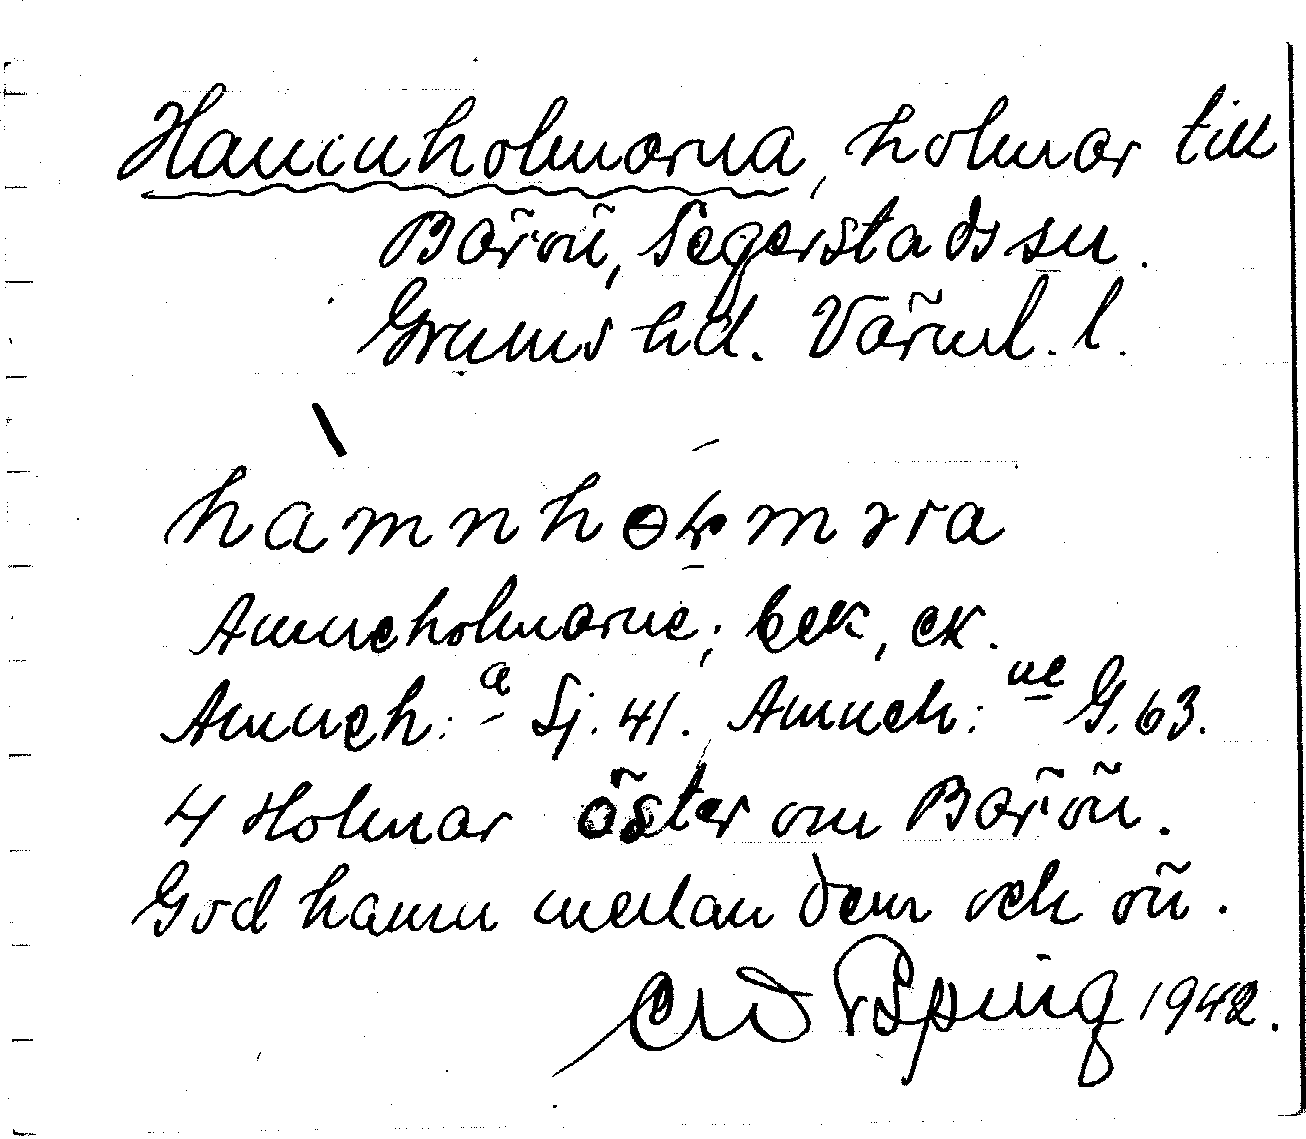 Hamnholmarna, holmar till
Barön, Segerstads sn.
Grums hd. Värml. l.
hàmnhoɫmɜra
Amneholmarne; bek, ek.
Amneh: a Sj. 41. Amneh: ne G. 63.
4 Holmar öster om Barön.
God hamn mellan dem och ön.
1942.